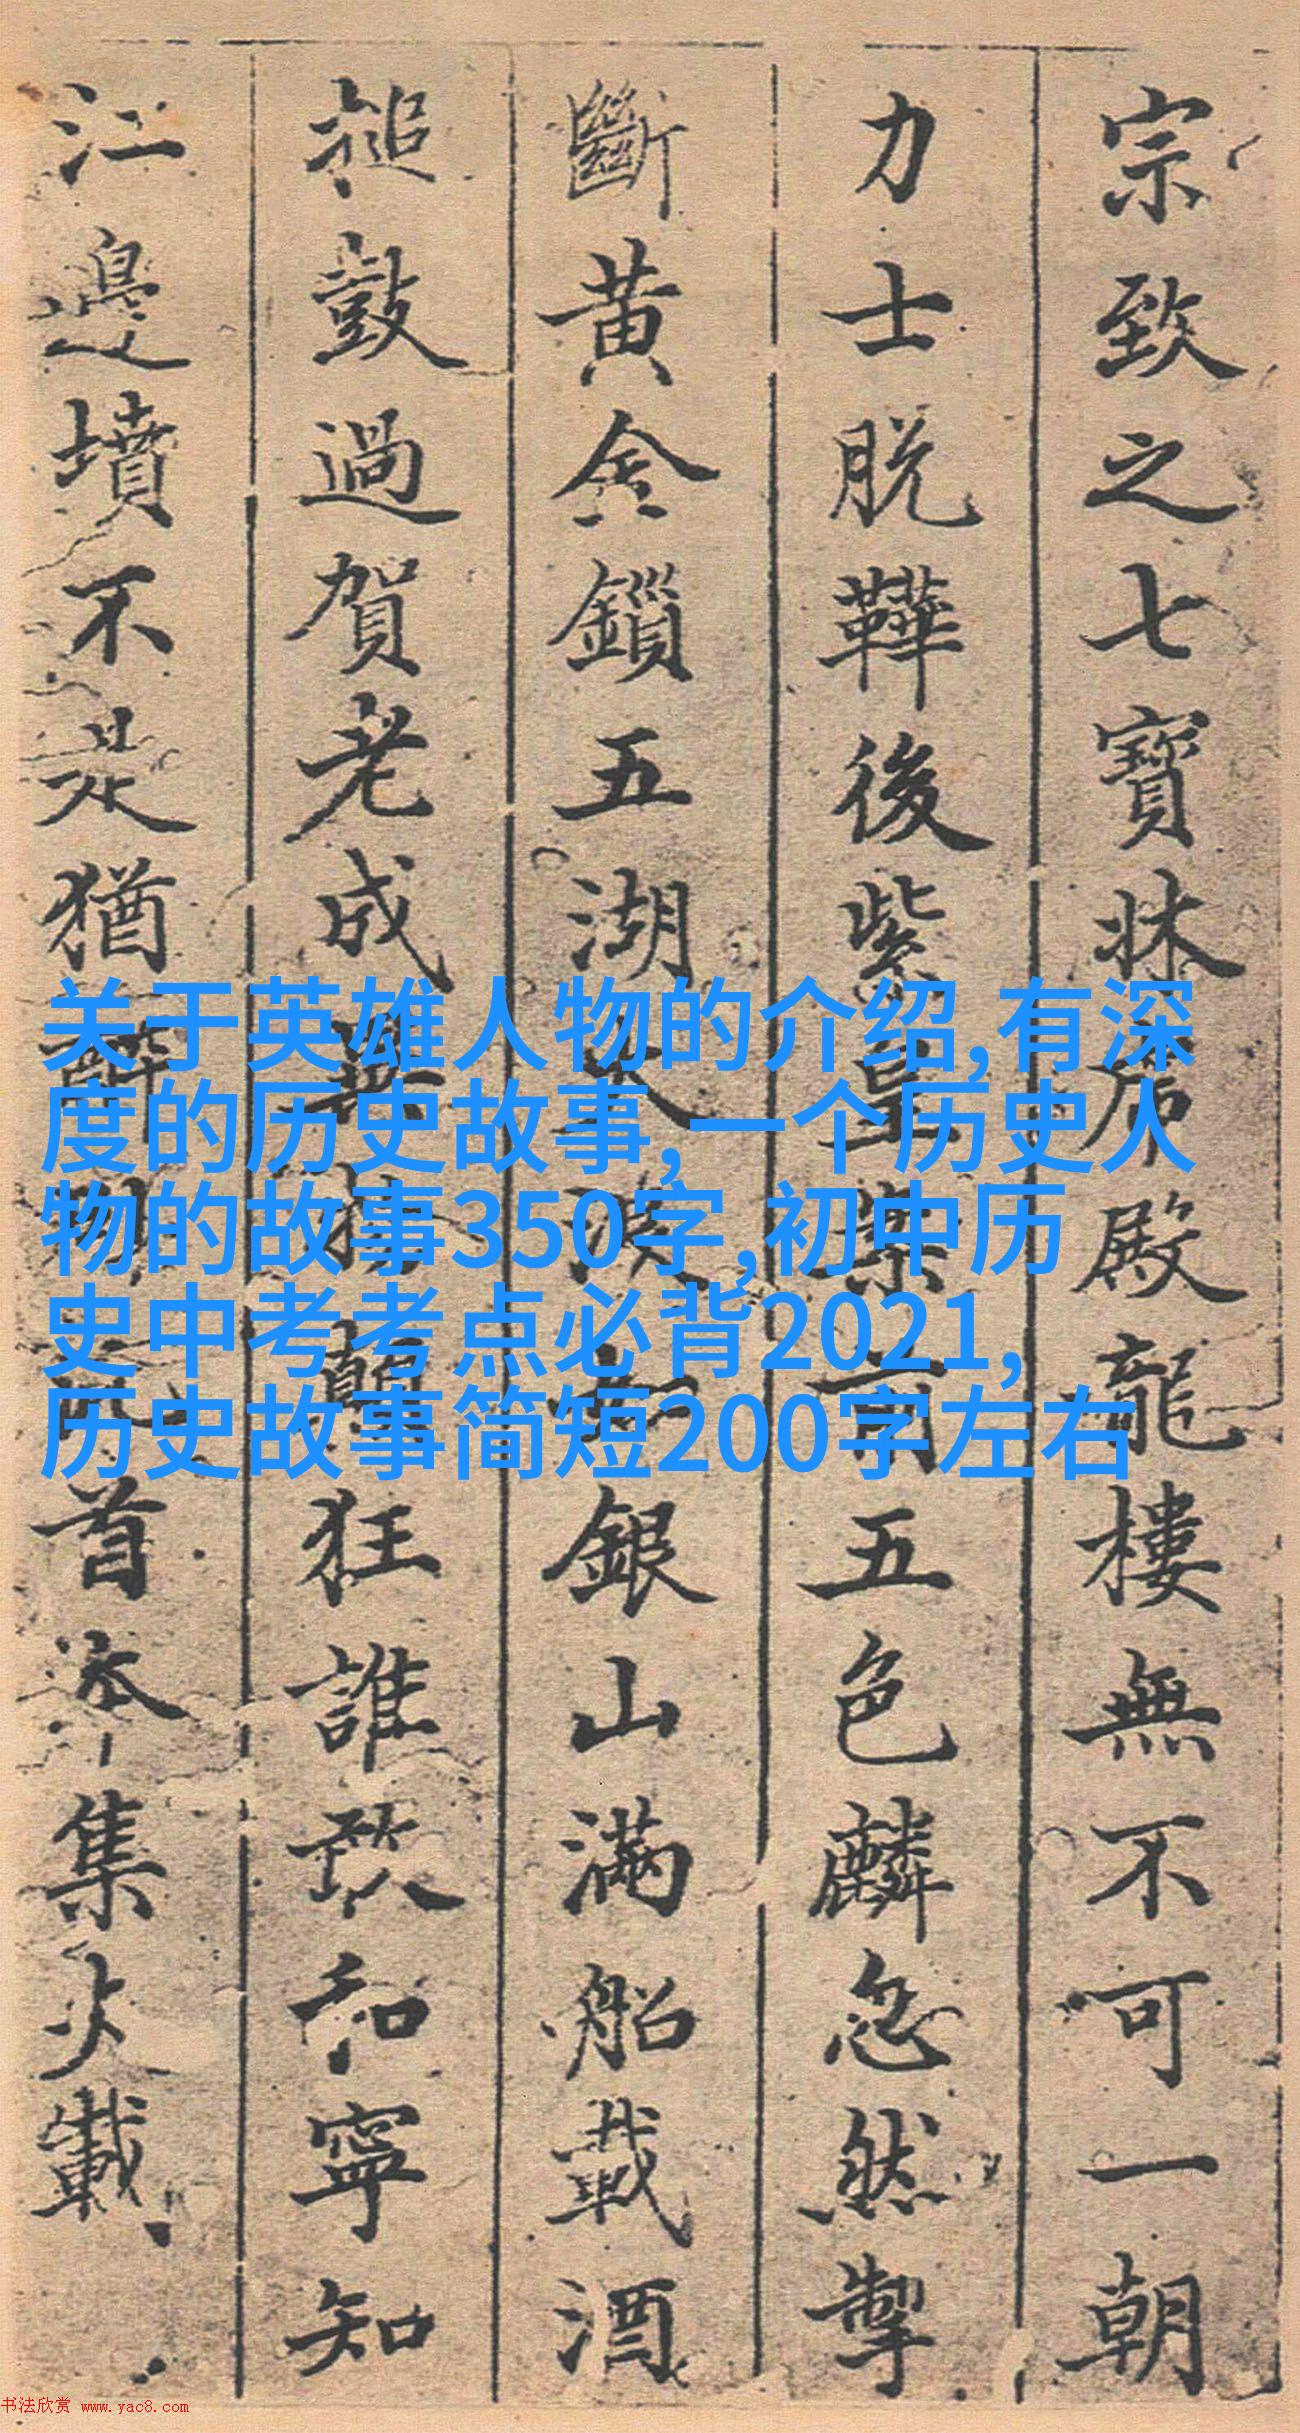 宗致之七寶牀虎殿龍樓無不可一朝
力士脱鞾後紫皇案前五色麟忽然掣
斷黄金鎖五湖大浪如銀山滿船載酒
搥鼓過賀老成異物顛狂誰敢和寧知
江邊墳不是猶醉卧此首本集少載
关于英雄人物的介绍,有深
度的历史故事,一个历史人
物的故事350字,初中历
史中考考点必背2021,
历史故事简短200字左右
书法欣赏 www.yac8.com